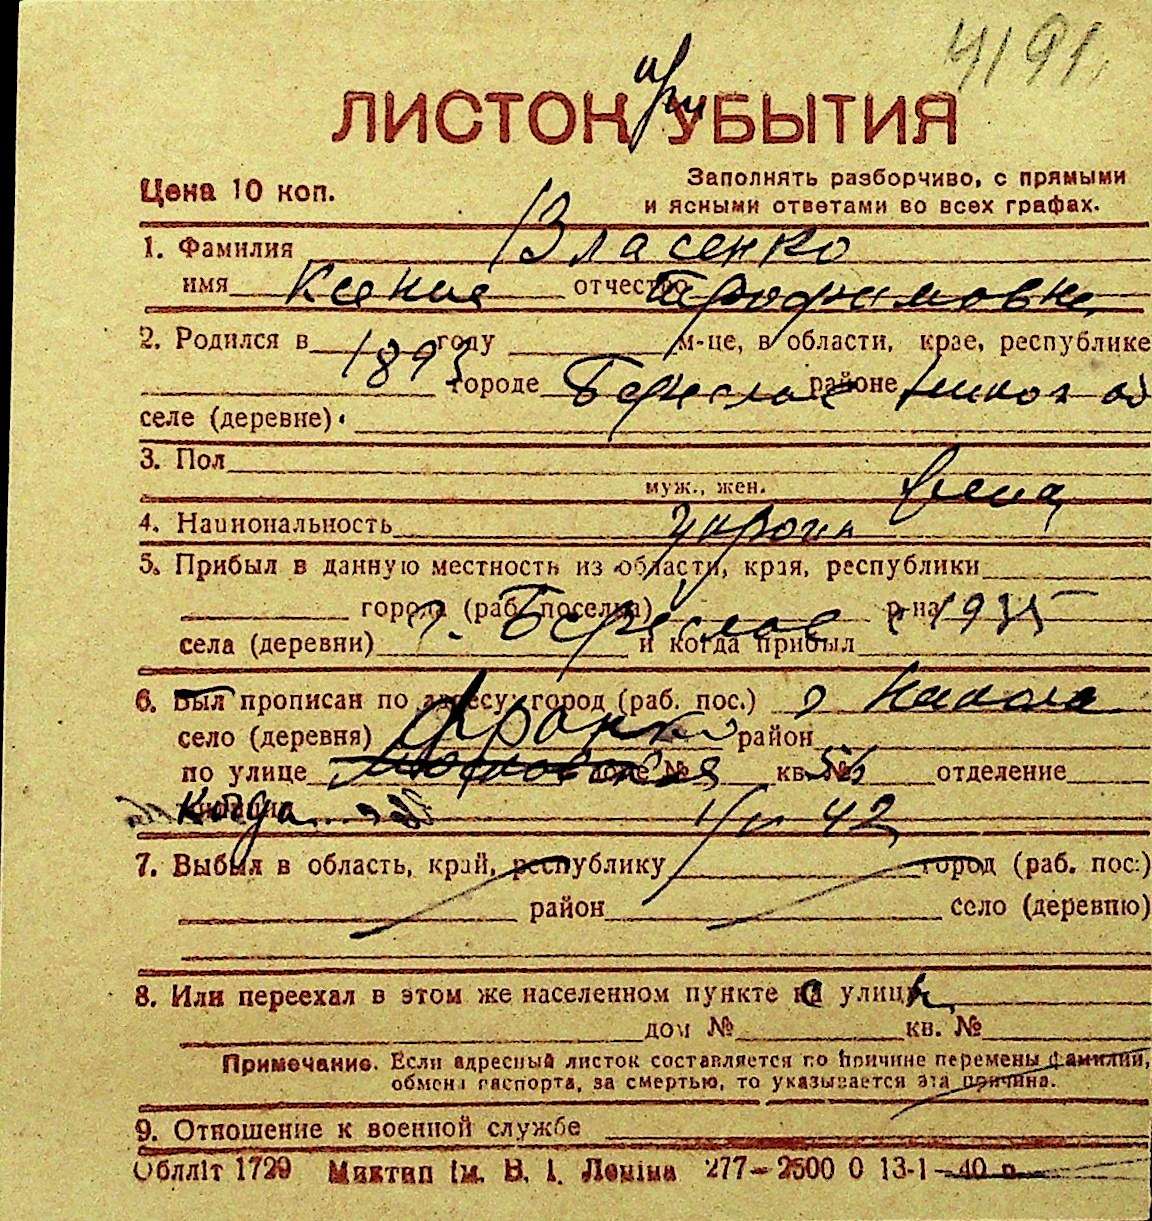 4191
при
ЛИСТОК УБЫТИЯ
Цена 10 коп.
Заполнять разборчиво, с прямыми
и ясными ответами во всех графах.
1. Фамилия Власенко
имя Ксения отчество Трофимовна
2. Родился в 1893 году м-це, в области, крае, республике
городе Берислав районе Никол об
селе (деревне)
3. Пол
муж., жен. жена
4. Национальность украин
5. Прибыл в данную местность из области, края, республики
города (раб. поселка) р-на 1935
села (деревни) г. Берислав и когда прибыл
6. Был прописан по адресу: город (раб. пос.) г Никола
село (деревня) Франко район
по улице доме № кв. № 56 отделение
Когда 42
7. Выбыл в область, край, республику город (раб. пос.)
район село (деревню)
8. Или переехал в этом же населенном пункте на улицу
дом № кв. №
Примечание. Если адресный листок составляется по причине перемены фамилии,
обмена паспорта, за смертью, то указывается эта причина.
9. Отношение к военной службе
Облліт 1729 Миктип ім. В. І. Леніна 277—2500 0 13-1—40 р.